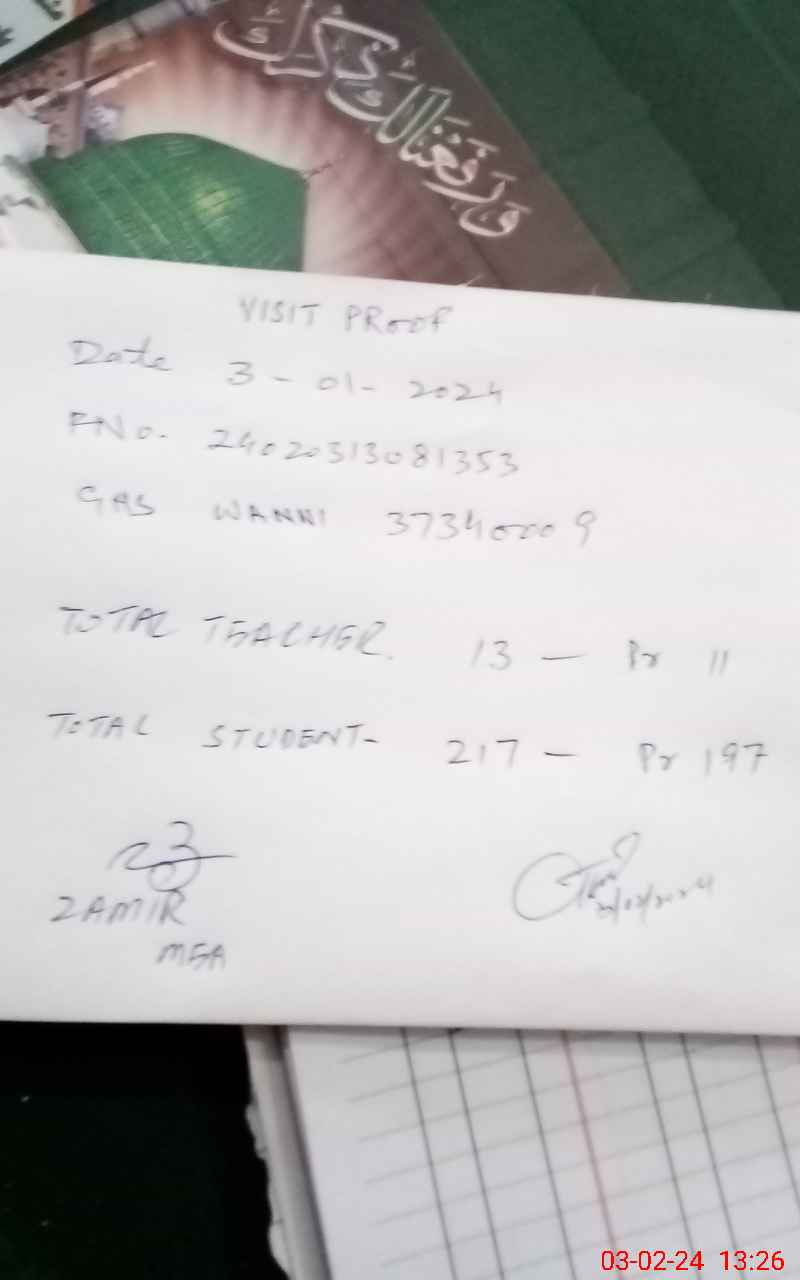 وَرَفَعْنَا لَكَ ذِكْرَكَ
VISIT PROOF
Date 3 - 01 - 2024
FNo. 24020313081353
GAS WANNI 37340009
TOTAL TEACHER. 13 — Pr 11
TOTAL STUDENT- 217 — Pr 197
ZAMIR
MEA
03-02-24 13:26